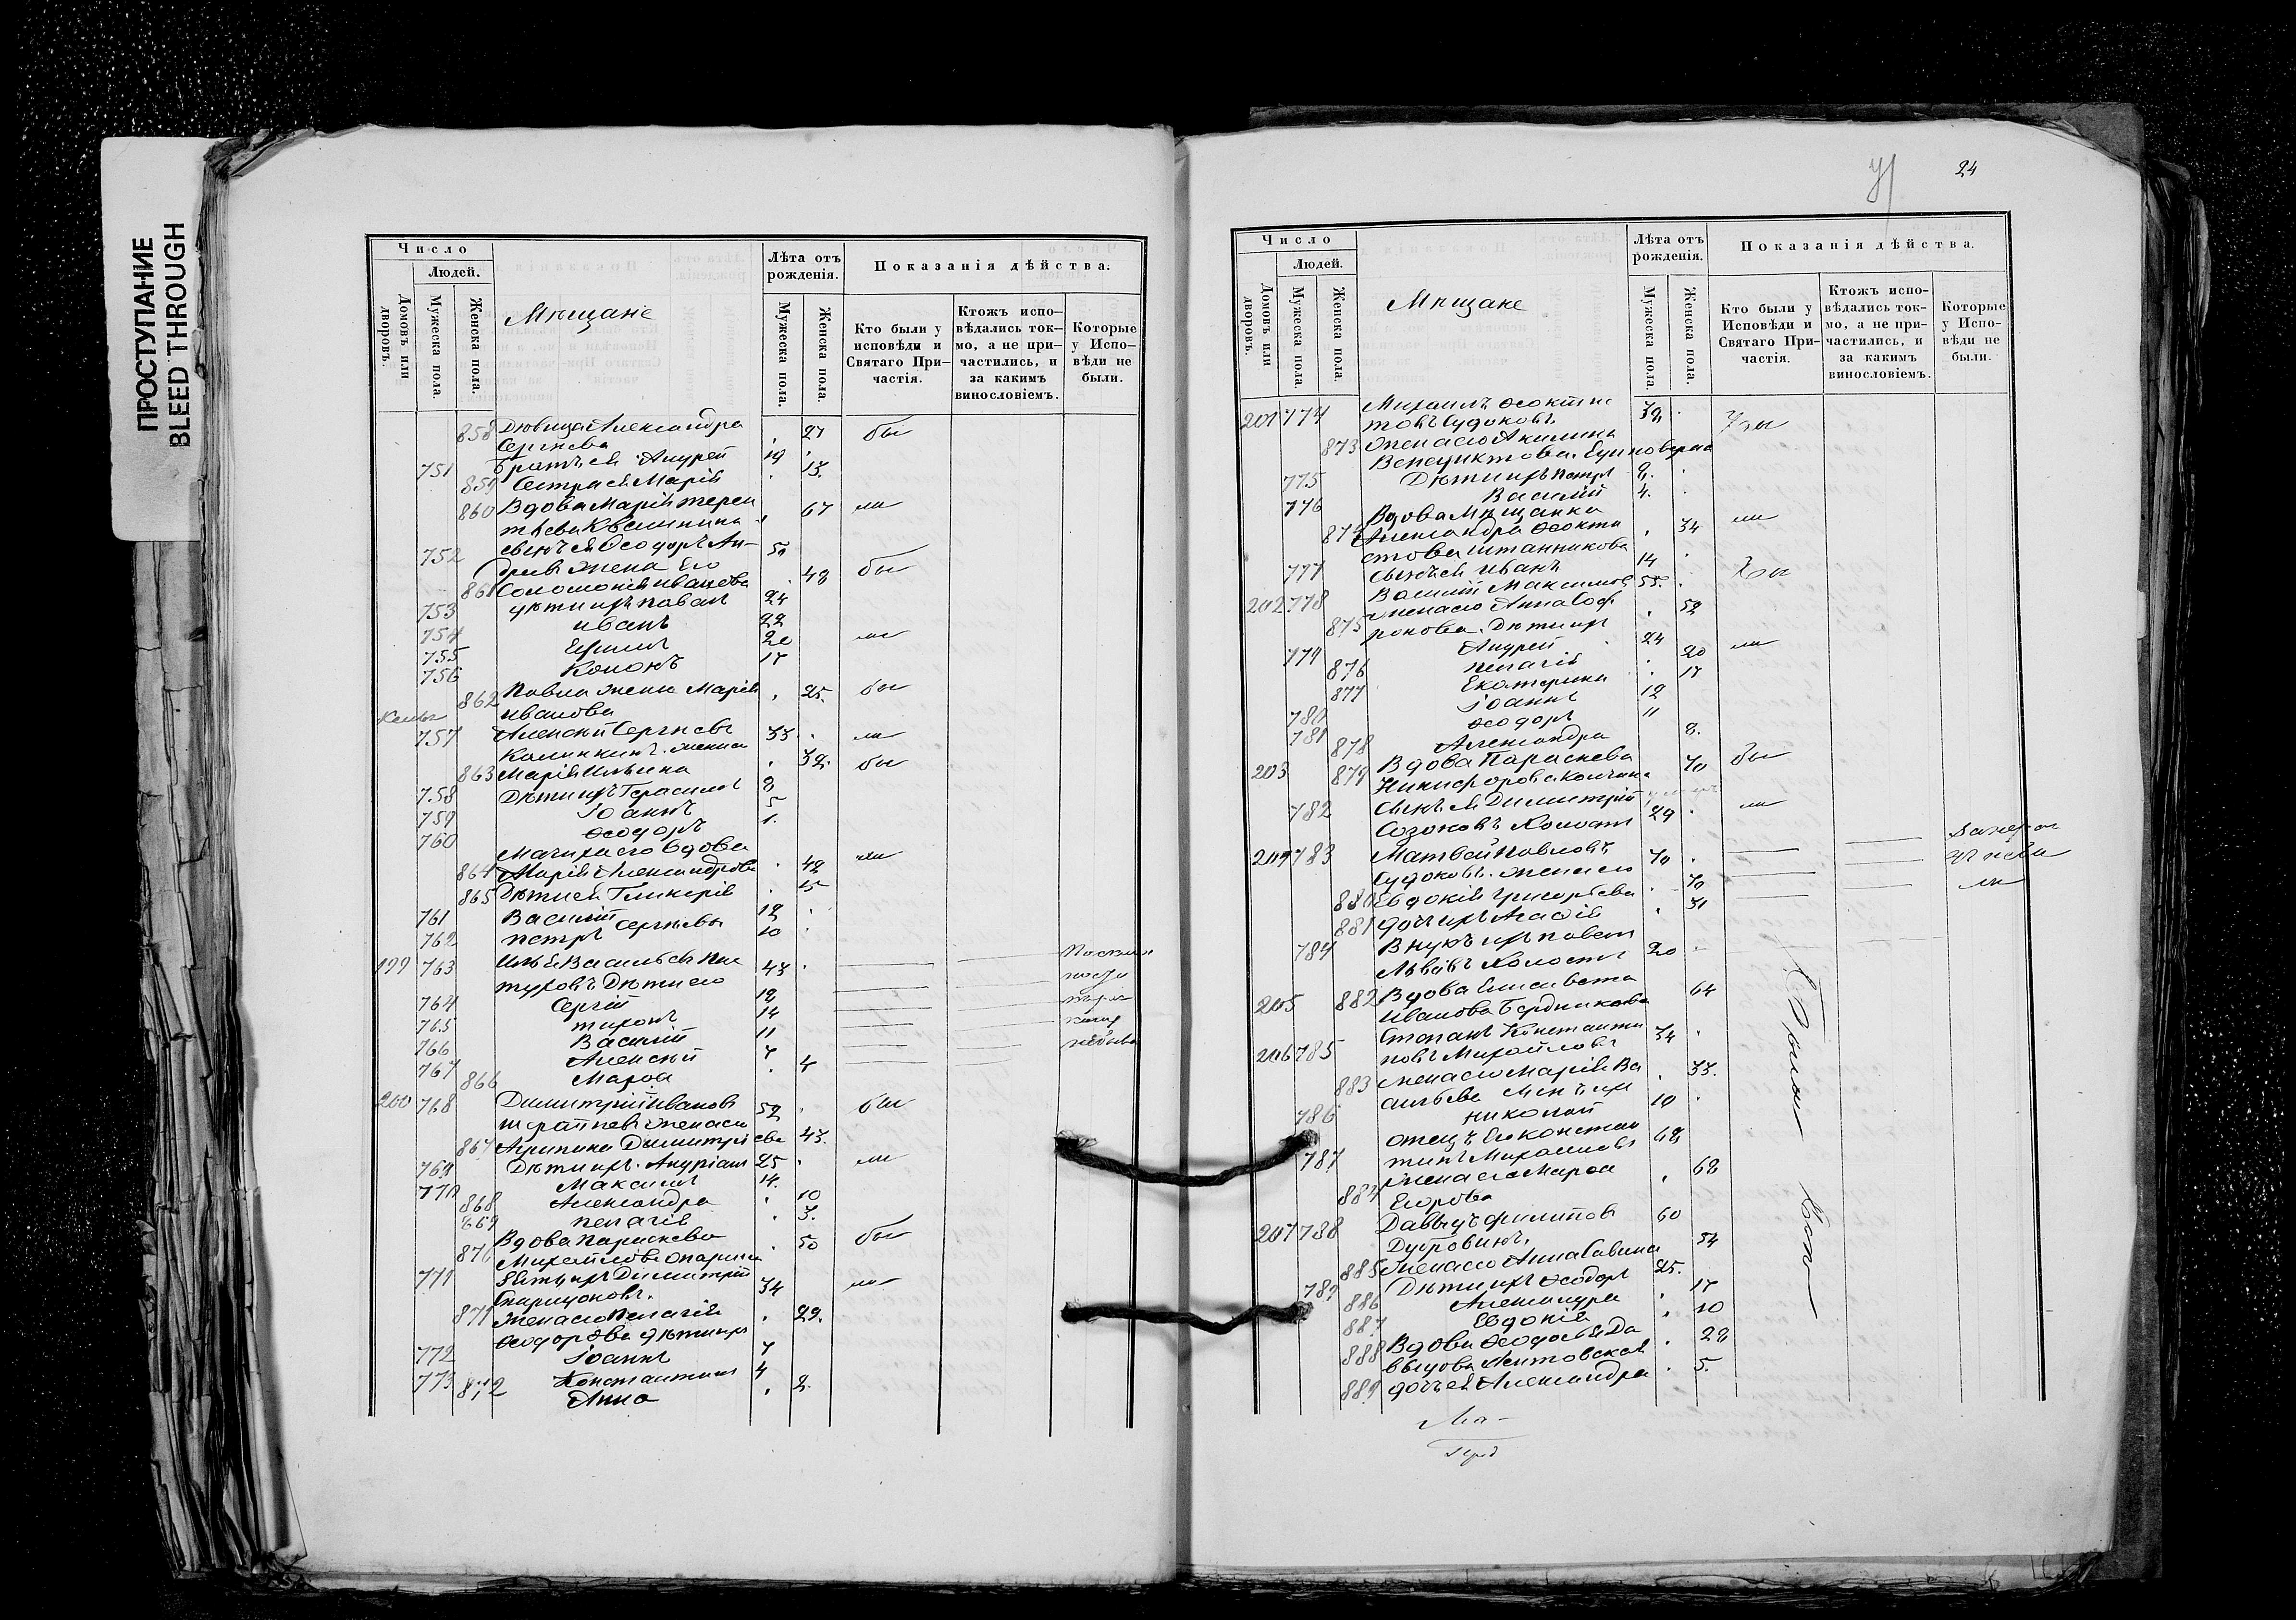 ПРОСТУПАНИЕ
BLEED THROUGH
Число
Людей.
Домовъ или дворовъ.
Мужеска пола.
Женска пола.
Мѣщане
Лѣта отъ рожденія.
Мужеска пола.
Женска пола.
Показанія дѣйства.
Кто были у исповѣди и Святаго Причастія.
Ктожъ исповѣдались токмо, а не причастились, и за какимъ винословіемъ.
Которые у Исповѣди не были.
858 Дѣвица Александра 27 бы
Сергѣева
751 Братъ ея Андрей 19
859 Сестра ея Марія 13.
860 Вдова Марія Терен 67 ли
тьева
752 сынъ ея Ѳеодоръ Ан- 50
дреевъ жена его 48 бы
861 Соломонія Иванова
753 дѣти ихъ Павелъ 24
754 Иванъ 22
755 Ефимъ 20 ли
756 Кононъ 17
862 Павла жена Марія 25. бы
Иванова
757 Алексѣй Сергѣевъ 33. ли
Калинкинъ. жена
863 Марія Ильина 32. бы
758 Дѣти ихъ Герасимъ 8
759 Іоаннъ 5
760 Ѳеодоръ 1.
Мачиха его вдова
864 Марія Александрова 42 ли
865 Дѣти ея Гликерія 5
761 Василій 12
762 Петръ Сергѣевы 10
199 763 Илья Васильевъ 43
Дѣти его
764 Сергій 18
765 Миронъ 14
766 Василій 11
767 Алексѣй 7
866 Марѳа 4
небыли
200 768 Димитрій Ивановъ 52 бы
жена его
867 Агрипина Димитріева 43.
769 Дѣти ихъ. Андріанъ 25 ли
770 Максимъ 14.
868 Александра 10
869 Пелагія 3.
870 Вдова Параскева 50 бы
Михайлова
771 Димитрій 34 ли
Спиридоновъ.
871 жена его Пелагія 29.
Ѳеодорова дѣти ихъ
772 Іоаннъ 7
773 Константинъ 4
872 Анна 2.
24
Число
Людей.
Домовъ или дворовъ.
Мужеска пола.
Женска пола.
Мѣщане
Лѣта отъ рожденія.
Мужеска пола.
Женска пола.
Показанія дѣйства.
Кто были у Исповѣди и Святаго Причастія.
Ктожъ исповѣдались токмо, а не причастились, и за какимъ винословіемъ.
Которые у Исповѣди не были.
201 774 Михаилъ Ѳеокти 32
товъ Судоковъ
873 жена его Акилина
Венедиктова. Единоверка
775 Дѣти ихъ Петръ 8.
776 Василій 4.
Вдова Мѣщанка ли
874 Александра Ѳеокти 34
стова Штанникова
777 сынъ ея Иванъ 14
202 778 Василій Максимовъ 55.
875 жена его Анна Соф 52
ронова. Дѣти ихъ
779 Андрей 24 ли
876 Пелагія 20
877 Екатерина 17
780 Іоаннъ 12
781 Ѳеодоръ 11
878 Александра 8.
203 879 Вдова Параскева 70 бы
Никифорова
782 сынъ ея Димитрій ли
Созоновъ Холостъ 29
204 783 Матвей Павловъ 70
Судоковъ. жена его
880 Евдокія Григорьева 70
881 дочь ихъ Агафія 31
784 Внукъ ихъ Павелъ
Львовъ Холостъ 20
205 882 Вдова Елисавета 64
Иванова Бердникова
206 785 Степанъ Константи 34
новъ Михайловъ
883 жена его Марія Ва 33.
сильева Сынъ ихъ
786 Николай 10
Отецъ его Констан
787 тинъ Михайловъ 68
884 жена его Марѳа 68
Егорова
207 788 Давыдъ Филиповъ 60
Дубровинъ.
885 жена его Анна Савина 54
789 Дѣти ихъ Ѳеодоръ 25.
886 Александра 17
887 Евдокія 10
888 Вдова Ѳеодосья Да 28
выдова
889 дочь ея Александра 5.